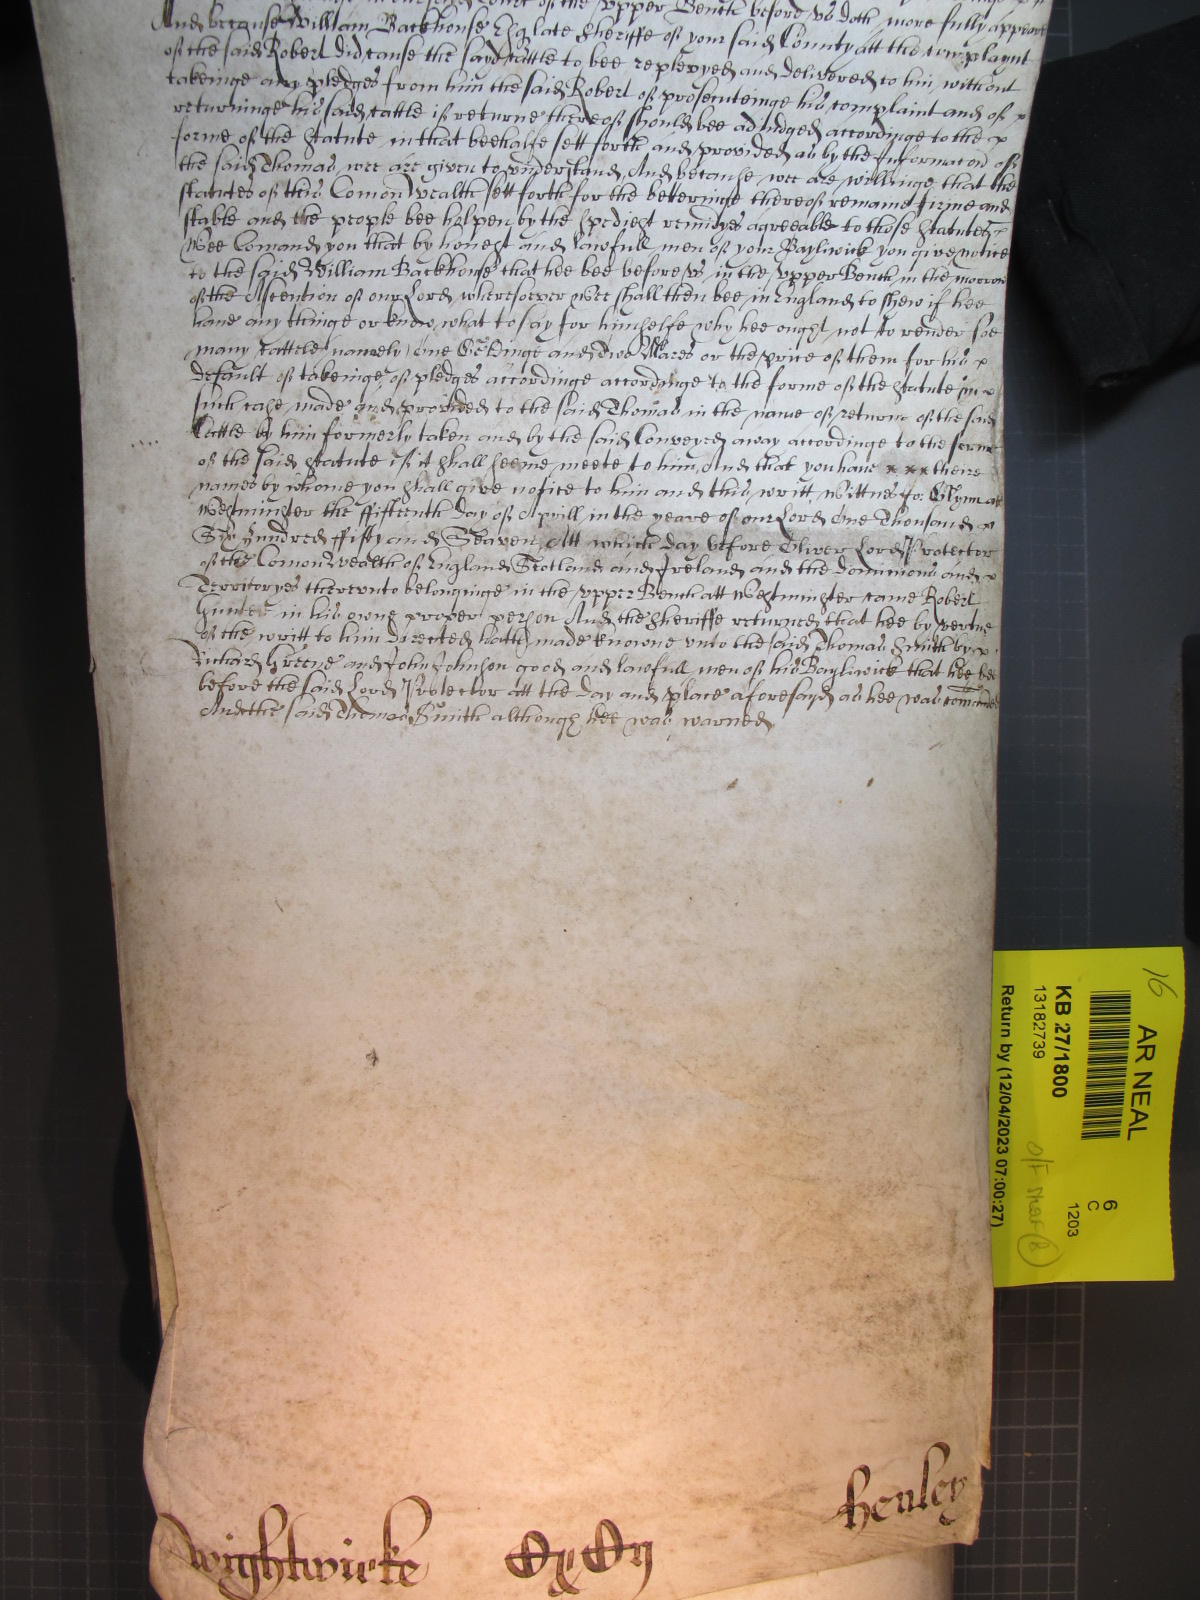 Court of the Upper Bench before vs doth more fully appeare
And because William Backhouse Esq late Sheriffe of your said County att the complaynt
of the said Robert did cause the said Cattle to bee replevyed and delivered to him without
takeinge any pledges from him the said Robert of prosecuteinge his complaint and of x
returninge his said cattle if returne thereof should bee adiudged accordinge to the x
forme of the Statute in that beehalfe sett forth and provided as by the Informacon of
the said Thomas wee are given to vnderstand, And because wee are willinge that the
Statutes of this Comon Wealth sett forth for the betteringe thereof remaine firme and
stable and the people bee helpen by the spediest remidyes agreeable to those Statutes
Wee Comand you that by honest and lawfull men of your Bayliwick you give notice
to the said William Backhouse that hee bee before vs in the vpper Bench in the morrow
of the Ascention of our Lord wheresoever Wee shall then bee in England to shew if hee
haue any thinge or know what to say for himselfe why hee ought not to render soe
many Cattle (namely) one Geldinge and two Mares or the price of them for his x
default of takeinge of pledges accordinge accordinge to the forme of the Statute in x
such case made and provided to the said Thomas in the name of returne of the said
Cattle by him formerly taken and by the said Conveyed away accordinge to the forme
of the said Statute if it shall seeme meete to him And that you haue x x x theire
names by whome you shall give notice to him and this writt Wittnes Jo: Glynn att
Westminster the ffifteenth day of Aprill in the yeare of our Lord One Thousand x
Six hundred ffifty and Seaven, Att which day before Oliver Lord Protector
of the Comon Wealth of England Scotland and Ireland and the Dominions and x
Territoryes therevnto belonginge in the vpper Bench att Westminster came Robert
Hunter in his owne proper person And the Sheriffe returned that hee by vertue
of the writt to him directed hath made knowne vnto the said Thomas Smith by x
Richard Greene and John Johnson good and lawfull men of his Bayliwick that hee bee
before the said Lord Protector att the day and place aforesayd as hee was comanded
And the said Thomas Smith although hee was warned
Wightwicke OxOn Henley
16
AR NEAL
KB 27/1800
13182739
Return by (12/04/2023 07:00:27)
6
C
1203